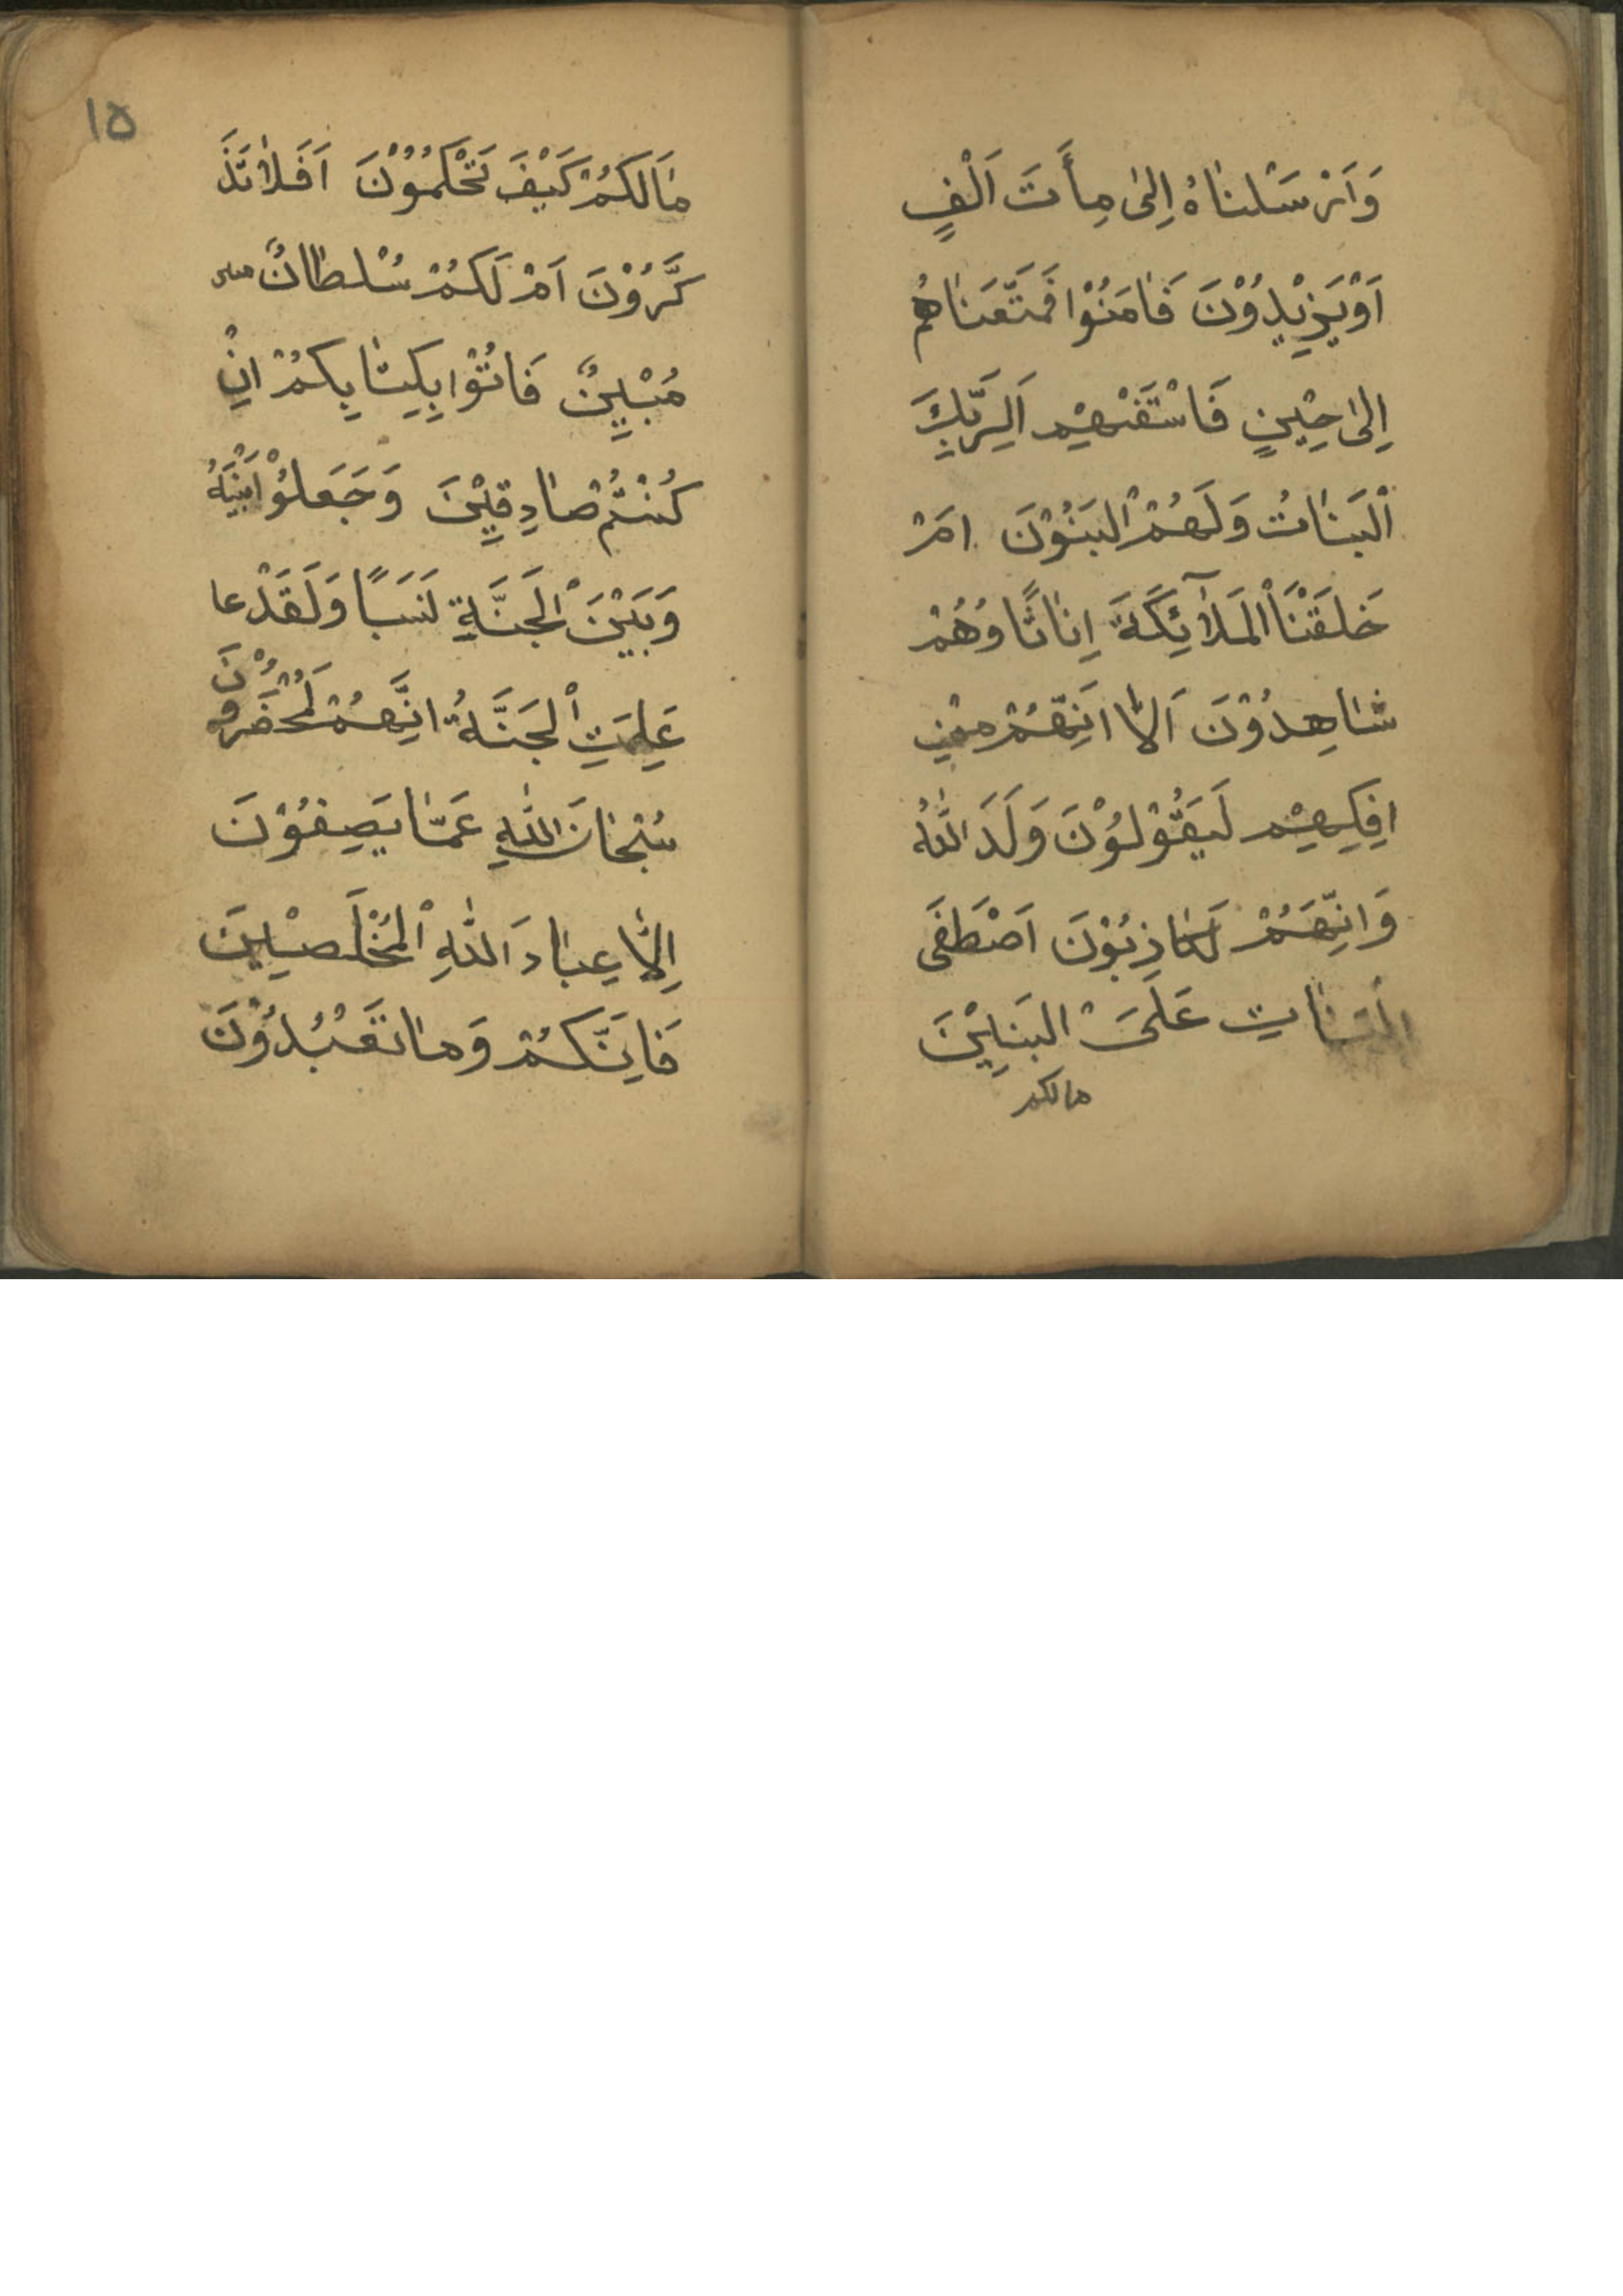 وَاَرْسَلْنٰاهُ اِلىٰ مِأَتَ اَلْفٍ
اَوْيَزِيْدُوْنَ فَاٰمَنُوْا فَمَتَّعَنٰاهُمْ
اِلىٰ حِيْنٍ فَاسْتَفْتِهِمْ اَلِرَبِّكَ
اْلبَنٰاتُ وَلَهُمْ اْلبَنُوْنَ اَمْ
خَلَقْنَا اْلمَلٰآئِكَةَ اِنٰاثًا وَهُمْ
شٰاهِدُوْنَ اَلاٰ اِنَّهُمْ مِنْ
اِفْكِهِمْ لَيَقُوْلُوْنَ وَلَدَ اللهُ
وَاِنَّهُمْ لَكٰاذِبُوْنَ اَصْطَفَى
اْلبَنٰاتِ عَلَىْ البَنِيْنَ
مالكم
١٥
مٰالَكُمْ كَيْفَ تَحْكُمُوْنَ اَفَلاٰتَذَ
كَّرُوْنَ اَمْ لَكُمْ سُلْطٰانٌ
مُبْيِنٌ فَاتُوْا بِكِتٰابِكُمْ اِنْ
كُنْتُمْ صٰادِقِيْنَ وَجَعَلُوْا بَيْنَهُ
وَبَيْنَ اْلجَنَّةِ نَسَبًا وَلَقَدْ عا
عَلِمَتِ اْلجَنَّةُ اِنَّهُمْ لَمُحْضَرُوْنَ
سُبْحٰانَ اللهِ عَمّٰا يَصِفُوْنَ
اِلاّٰ عِبٰادَ اللهِ اْلمُخْلَصِيْنَ
فَاِنَّكُمْ وَمٰا تَعْبُدُوْنَ